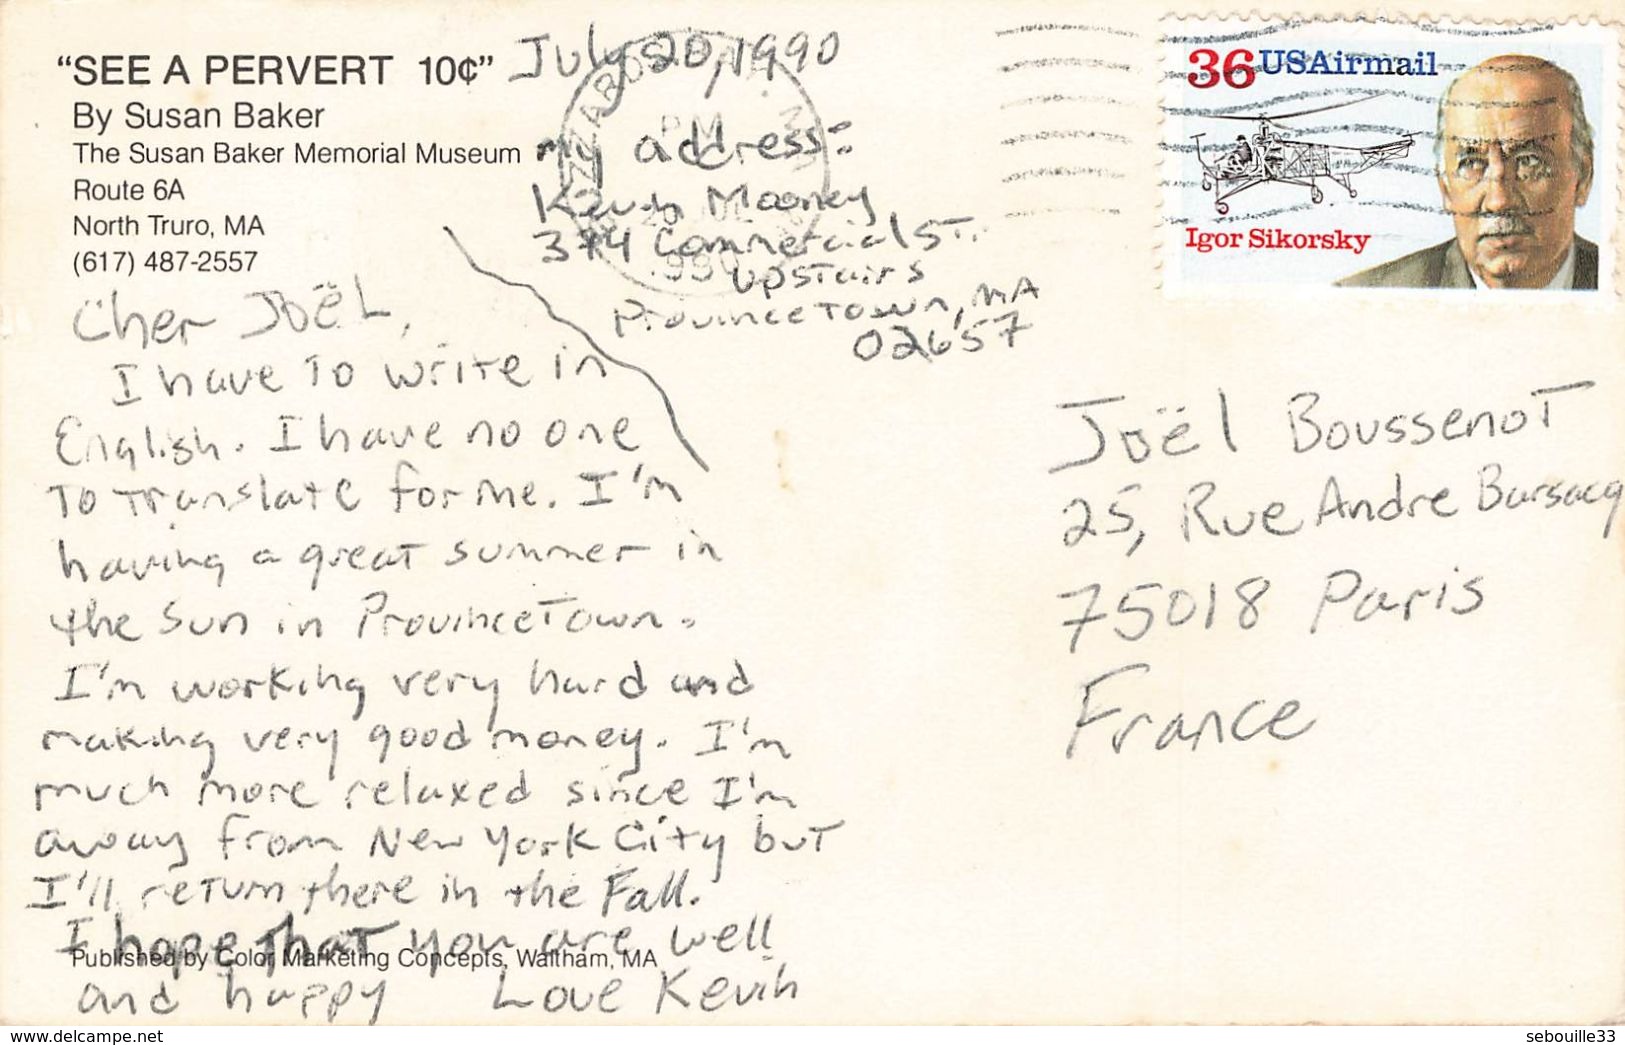 "SEE A PERVERT 10¢"
By Susan Baker
The Susan Baker Memorial Museum
Route 6A
North Truro, MA
(617) 487-2557
July 20, 1990
my address:
Kevin Mooney
374 Commercial ST.
Upstairs
ProvinceTown, MA
02657
Cher Joël,
I have to write in
English. I have no one
To translate for me. I'm
having a great summer in
the sun in ProvinceTown.
I'm working very hard and
making very good money. I'm
much more relaxed since I'm
away from New York City but
I'll return there in the Fall.
I hope that you are well
and happy Love Kevin
Published by Color Marketing Concepts, Waltham, MA
36 USAirmail
Igor Sikorsky
PM
1990
Joël Boussenot
25, Rue Andre Barsacq
75018 Paris
France
sebouille33